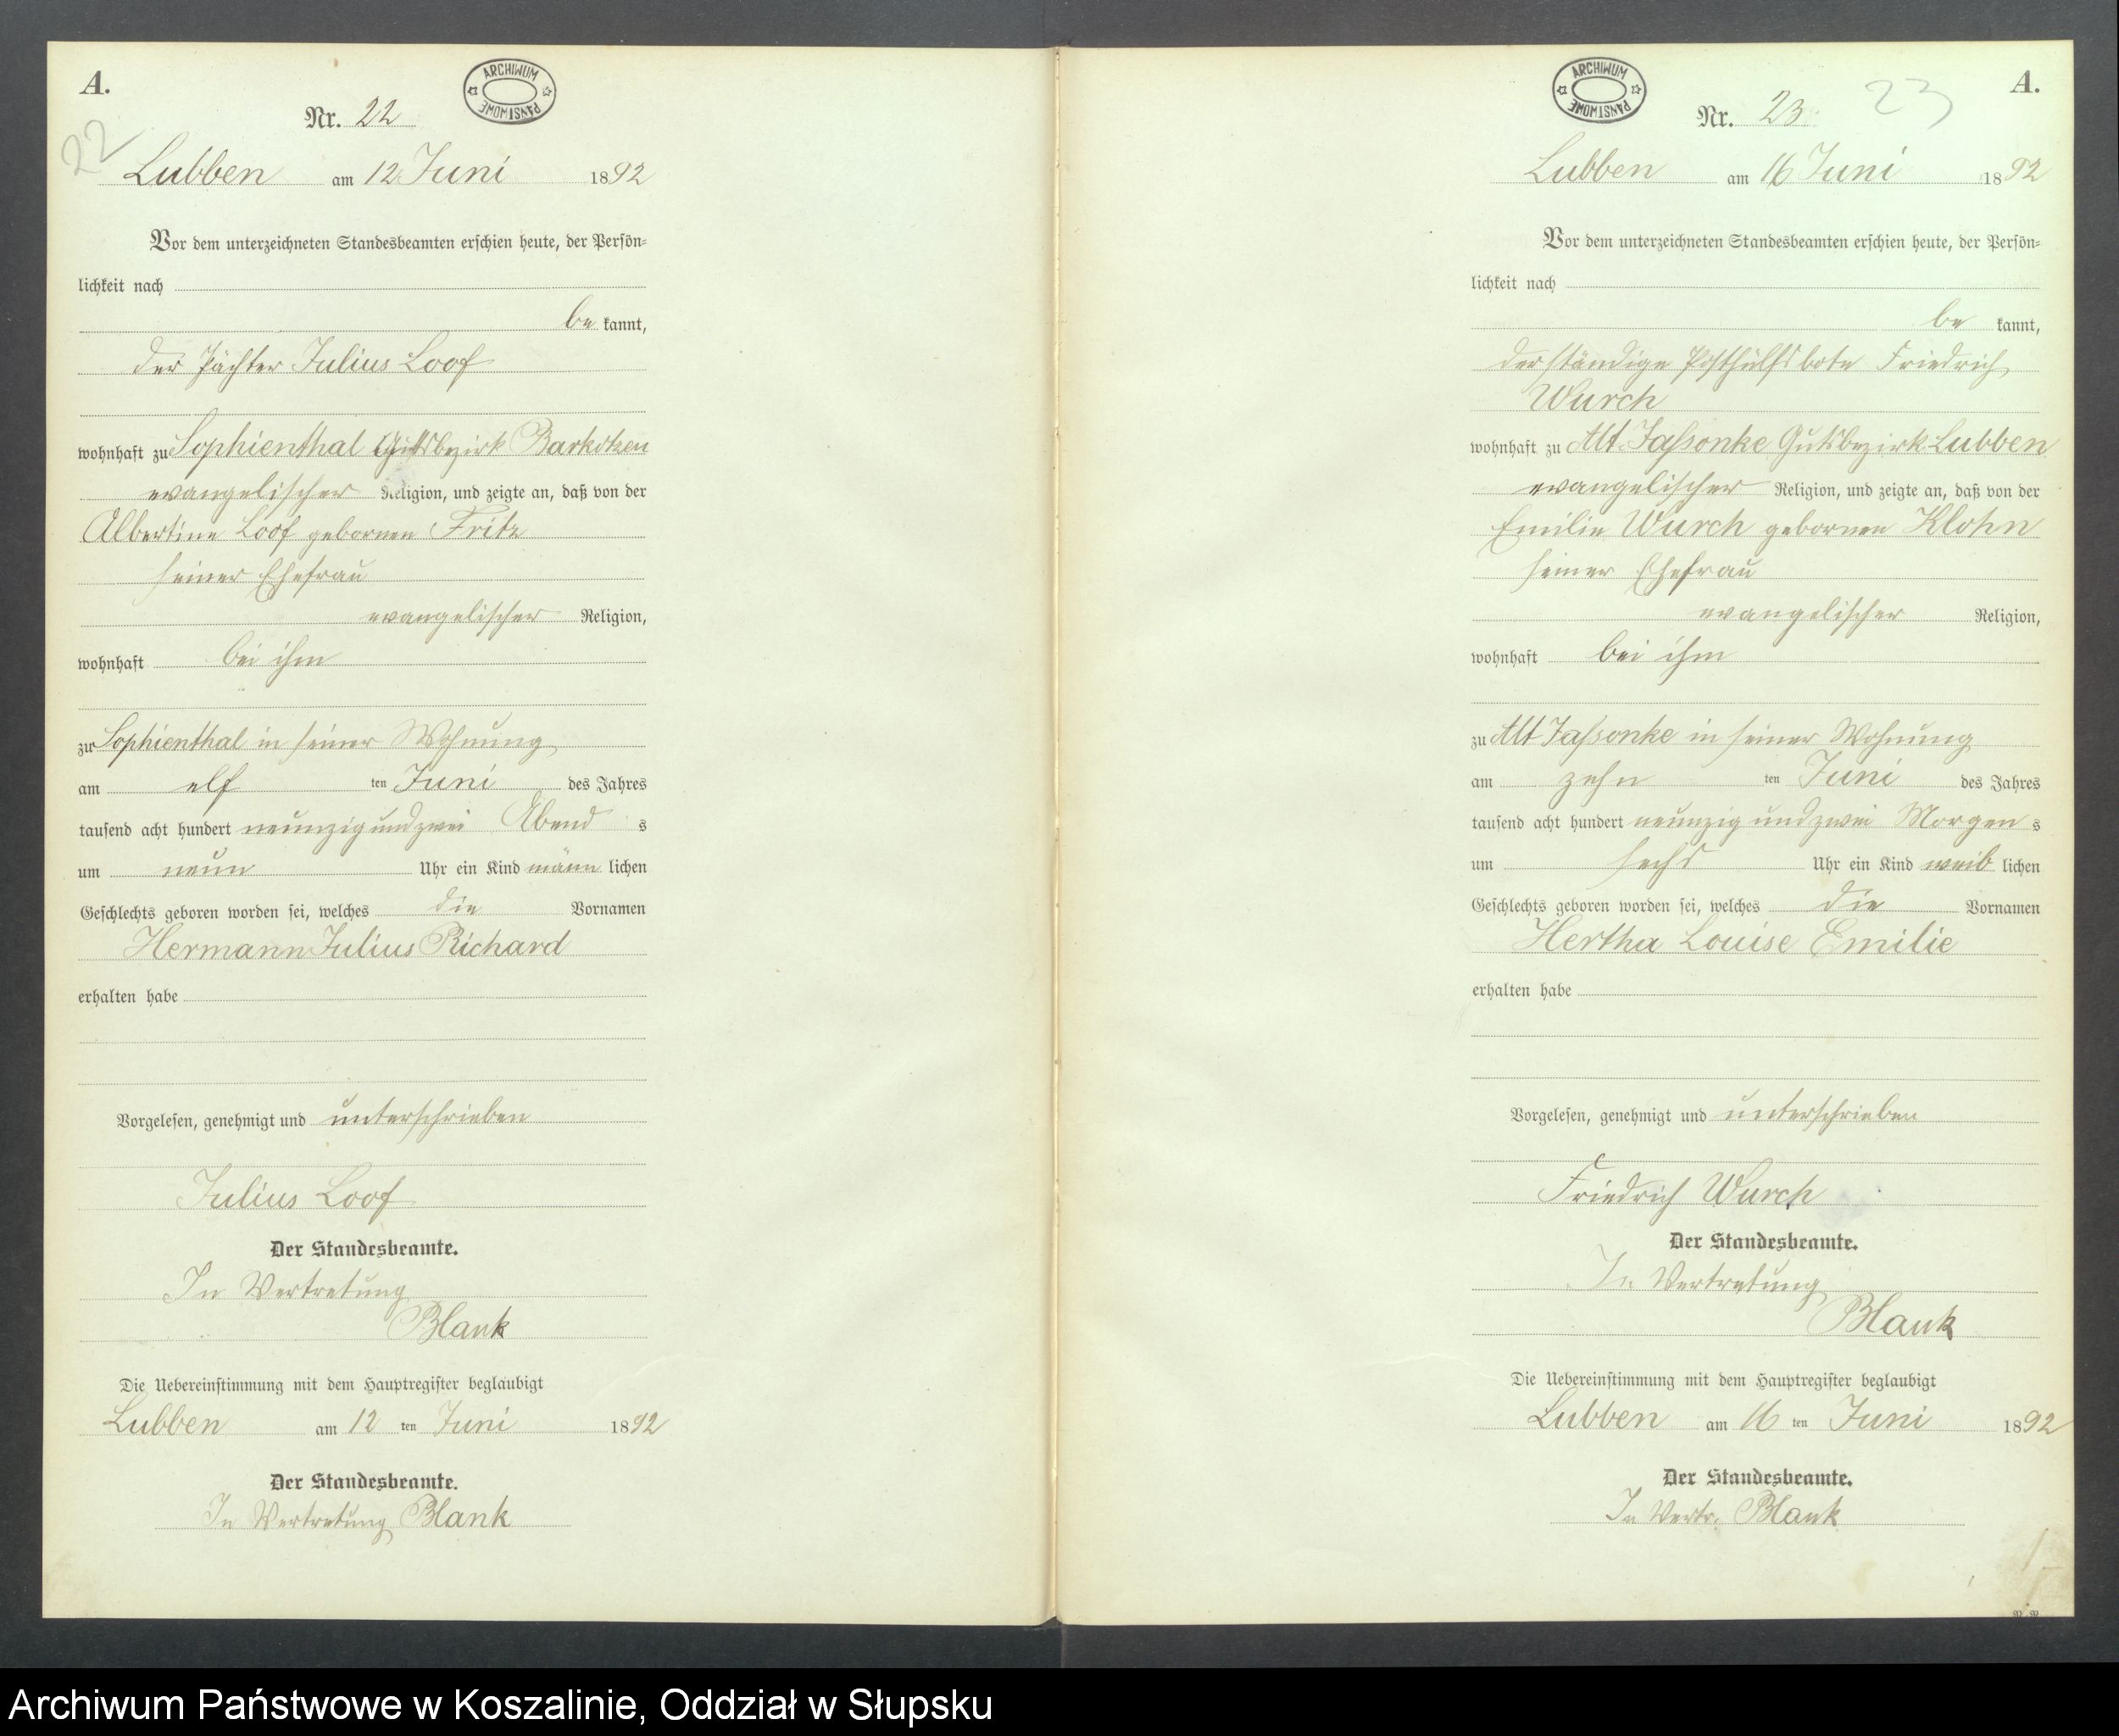 A.
ARCHIWUM PAŃSTWOWE
Nr. 22
22
Lubben am 12 Juni 1892
Vor dem unterzeichneten Standesbeamten erschien heute, der Persön=
lichkeit nach
be kannt,
der Pächter Julius Loof
wohnhaft zu Sophienthal Gutsbezirk Barkotzen
evangelischer Religion, und zeigte an, daß von der
Albertine Loof gebornen Fritz
seiner Ehefrau
evangelischer Religion,
wohnhaft bei ihm
zu Sophienthal in seiner Wohnung
am elf ten Juni des Jahres
tausend acht hundert neunzig und zwei Abend s
um neun Uhr ein Kind männ lichen
Geschlechts geboren worden sei, welches die Vornamen
Hermann Julius Richard
erhalten habe
Vorgelesen, genehmigt und unterschrieben
Julius Loof
Der Standesbeamte.
In Vertretung
Blank
Die Uebereinstimmung mit dem Hauptregister beglaubigt
Lubben am 12 ten Juni 1892
Der Standesbeamte.
In Vertretung Blank
A.
ARCHIWUM PAŃSTWOWE
Nr. 23
23
Lubben am 16 Juni 1892
Vor dem unterzeichneten Standesbeamten erschien heute, der Persön=
lichkeit nach
be kannt,
der ständige Posthülfsbote Friedrich
Wurch
wohnhaft zu Alt Jassonke Gutsbezirk Lubben
evangelischer Religion, und zeigte an, daß von der
Emilie Wurch gebornen Klohn
seiner Ehefrau
evangelischer Religion,
wohnhaft bei ihm
zu Alt Jassonke in seiner Wohnung
am zehn ten Juni des Jahres
tausend acht hundert neunzig und zwei Morgen s
um sechs Uhr ein Kind weib lichen
Geschlechts geboren worden sei, welches die Vornamen
Hertha Louise Emilie
erhalten habe
Vorgelesen, genehmigt und unterschrieben
Friedrich Wurch
Der Standesbeamte.
In Vertretung
Blank
Die Uebereinstimmung mit dem Hauptregister beglaubigt
Lubben am 16 ten Juni 1892
Der Standesbeamte.
In Vertr. Blank
Archiwum Państwowe w Koszalinie, Oddział w Słupsku